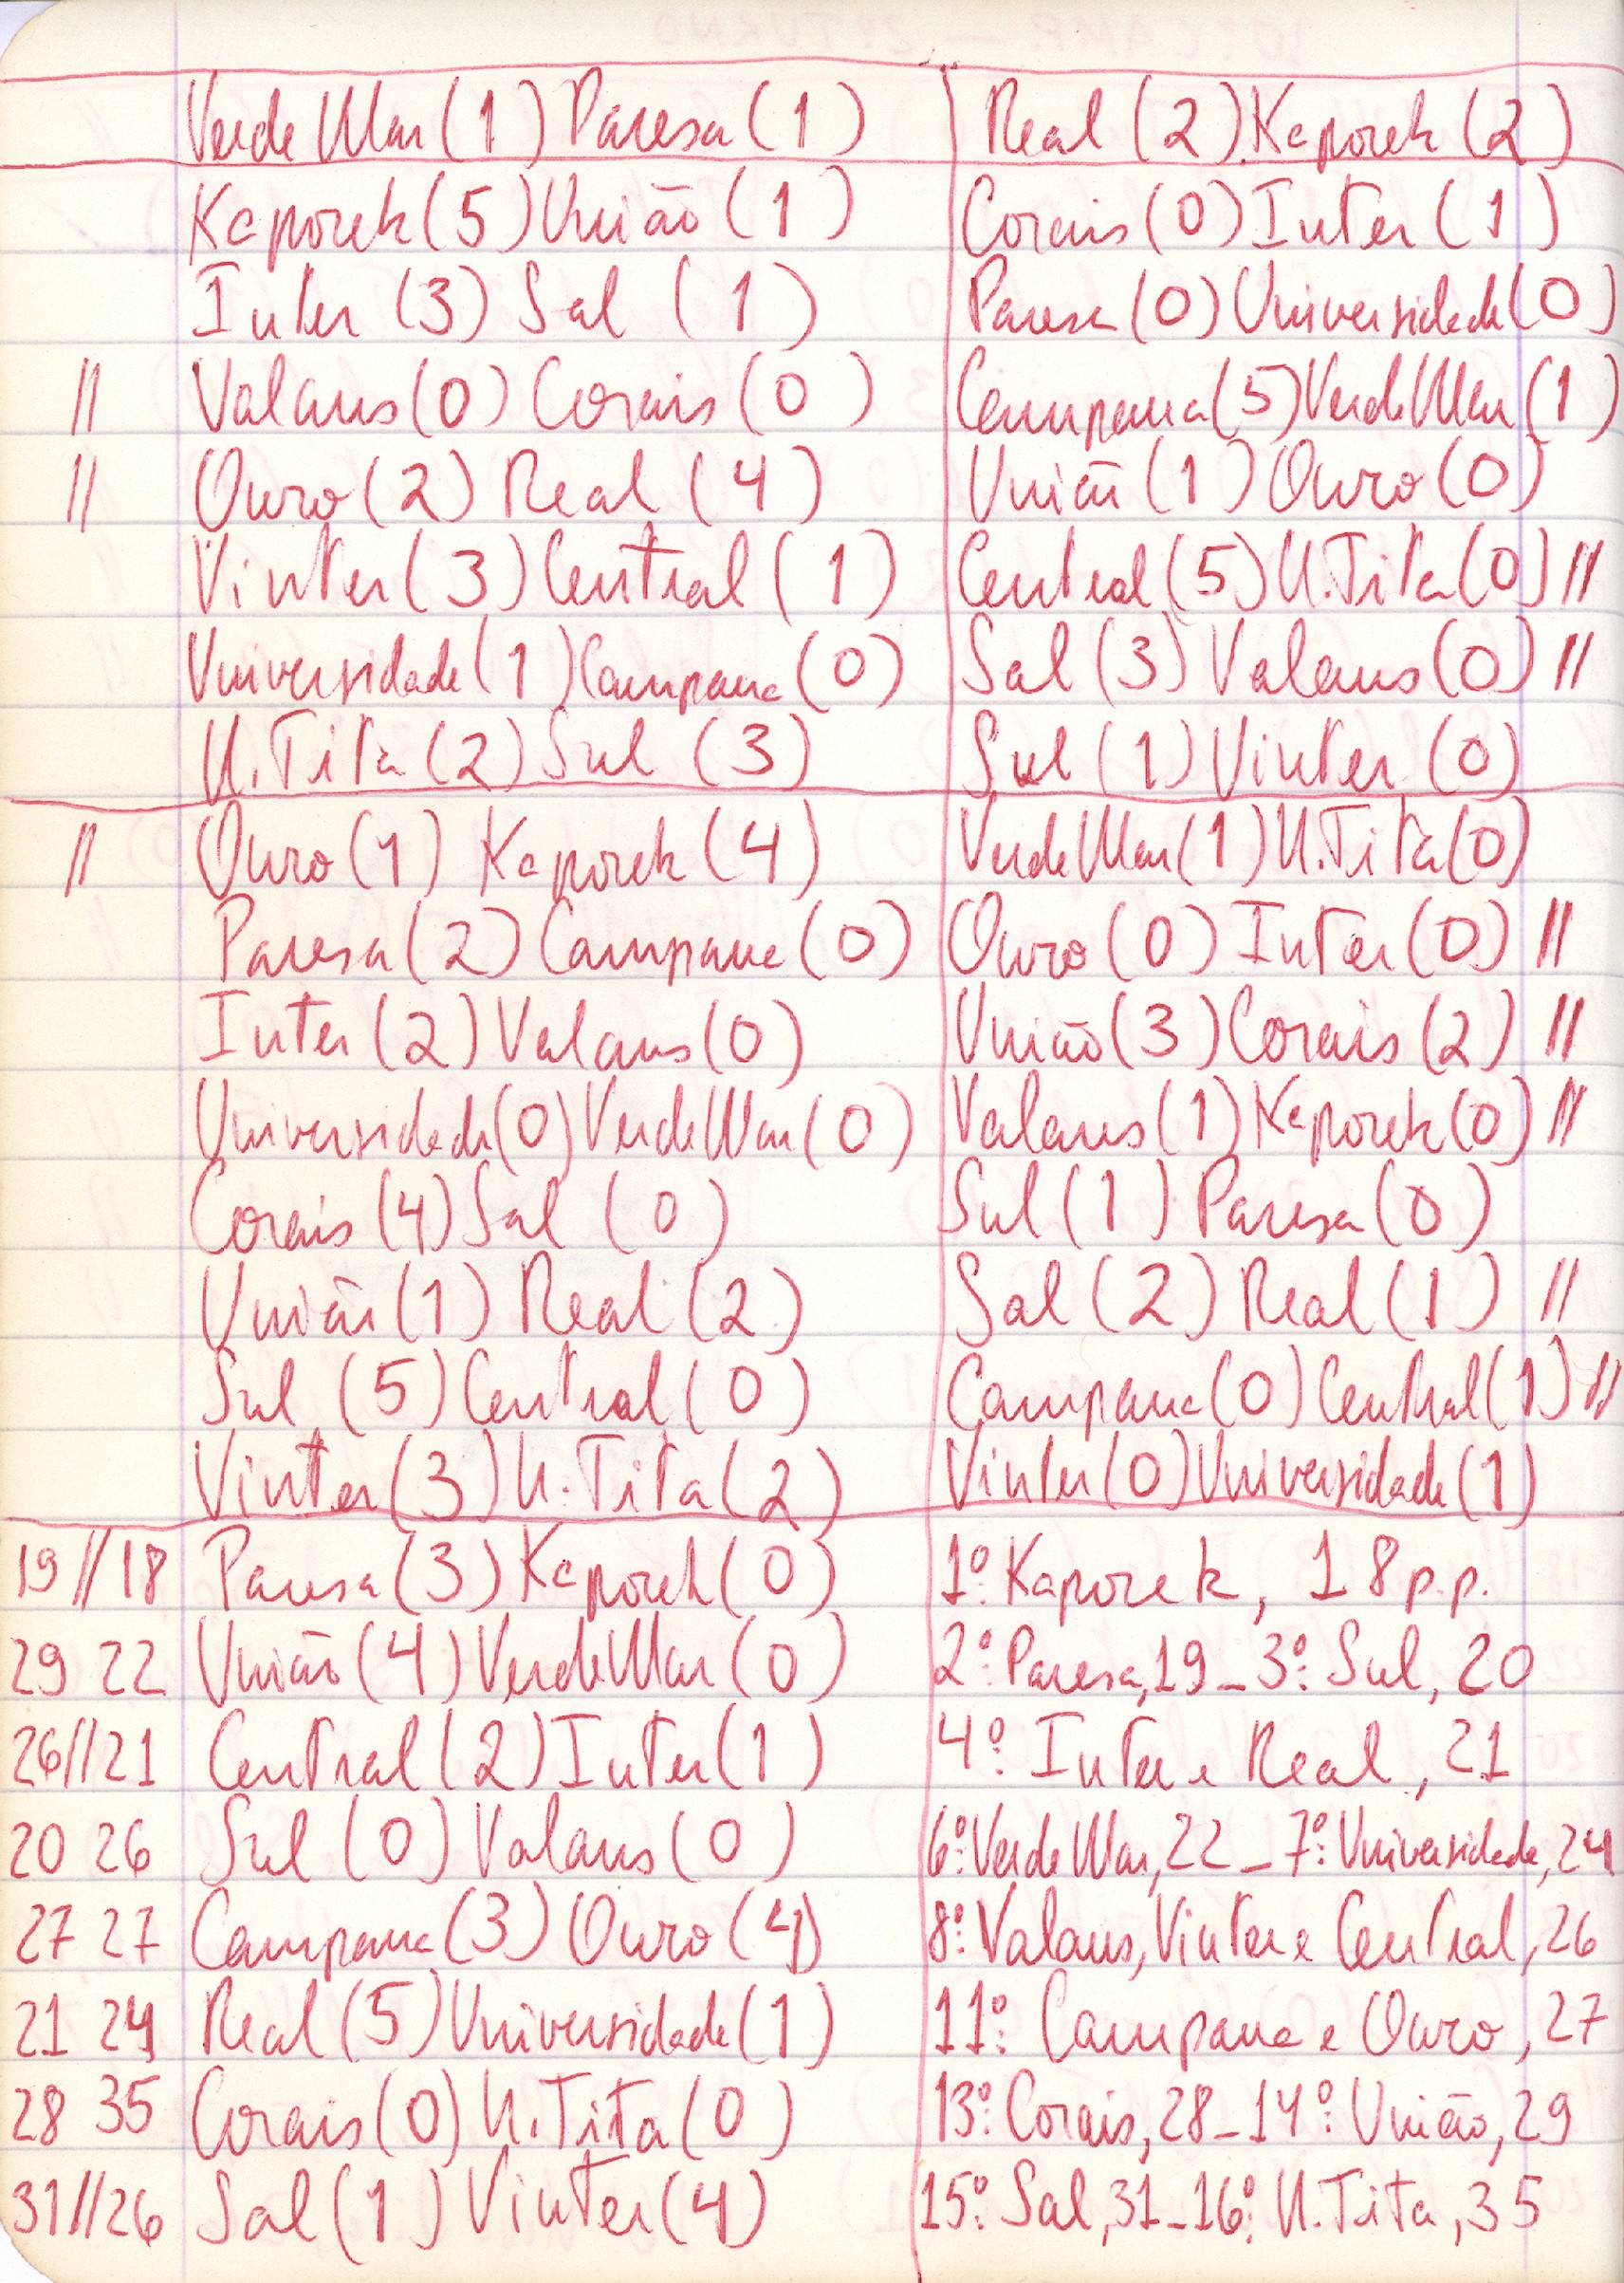 Verde Mar (1) Paresa (1)
Real (2) Kaporek (2)
Kaporek (5) União (1)
Inter (3) Sal (1)
// Valaus (0) Corais (0)
// Ouro (2) Real (4)
Vinter (3) Central (1)
Universidade (1) Campana (0)
U. Tita (2) Sul (3)
Corais (0) Inter (1)
Paresa (0) Universidade (0)
Campana (5) Verde Mar (1)
União (1) Ouro (0)
Central (5) U. Tita (0) //
Sal (3) Valaus (0) //
Sul (1) Vinter (0)
// Ouro (1) Kaporek (4)
Paresa (2) Campana (0)
Inter (2) Valaus (0)
Universidade (0) Verde Mar (0)
Corais (4) Sal (0)
União (1) Real (2)
Sul (5) Central (0)
Vinter (3) U. Tita (2)
Verde Mar (1) U. Tita (0)
Ouro (0) Inter (0) //
União (3) Corais (2) //
Valaus (1) Kaporek (0) //
Sul (1) Paresa (0)
Sal (2) Real (1) //
Campana (0) Central (1) //
Vinter (0) Universidade (1)
19 // 18 Paresa (3) Kaporek (0)
29 22 União (4) Verde Mar (0)
26 // 21 Central (2) Inter (1)
20 26 Sul (0) Valaus (0)
27 27 Campana (3) Ouro (4)
21 24 Real (5) Universidade (1)
28 35 Corais (0) U. Tita (0)
31 // 26 Sal (1) Vinter (4)
1º: Kaporek, 18 p.p.
2º: Paresa, 19 - 3º: Sul, 20
4º: Inter e Real, 21
6º: Verde Mar, 22 - 7º: Universidade, 24
8º: Valaus, Vinter e Central, 26
11º: Campana e Ouro, 27
13º: Corais, 28 - 14º: União, 29
15º: Sal, 31 - 16º: U. Tita, 35